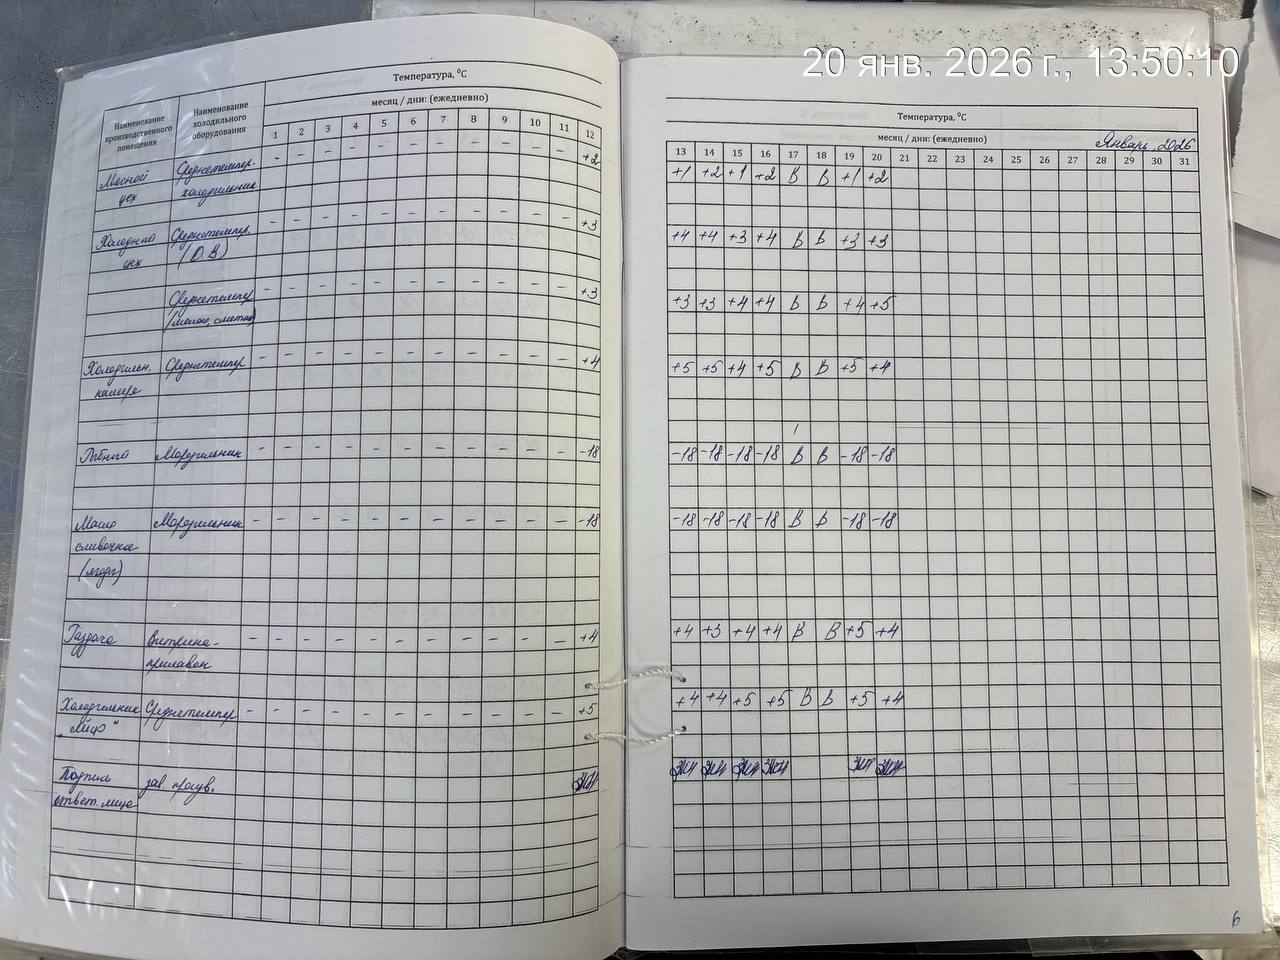 20 янв. 2026 г., 13:50:10
Температура, °С
Наименование производственного помещения
Наименование холодильного оборудования
месяц / дни: (ежедневно)
1 2 3 4 5 6 7 8 9 10 11 12
Мясной цех Среднетемпер. холодильник - - - - - - - - - - - +2
Холодный цех Среднетемпер. - - - - - - - - - - - +3
Среднетемпер - - - - - - - - - - - +3
Холодильн. камера Среднетемпер - - - - - - - - - - - +4
Морозильник - - - - - - - - - - - -18
Масло сливочное (ягоды) Морозильник - - - - - - - - - - - -18
Раздача Витрина-прилавок - - - - - - - - - - - +4
Холодильник „Яйцо“ Среднетемпер - - - - - - - - - - - +5
Подпись ответ. лица
Температура, °С
месяц / дни: (ежедневно)
Январь, 2026
13 14 15 16 17 18 19 20 21 22 23 24 25 26 27 28 29 30 31
+1 +2 +1 +2 В В +1 +2
+4 +4 +3 +4 В В +3 +3
+3 +3 +4 +4 В В +4 +5
+5 +5 +4 +5 В В +5 +4
-18 -18 -18 -18 В В -18 -18
-18 -18 -18 -18 В В -18 -18
+4 +3 +4 +4 В В +5 +4
+4 +4 +5 +5 В В +5 +4
6